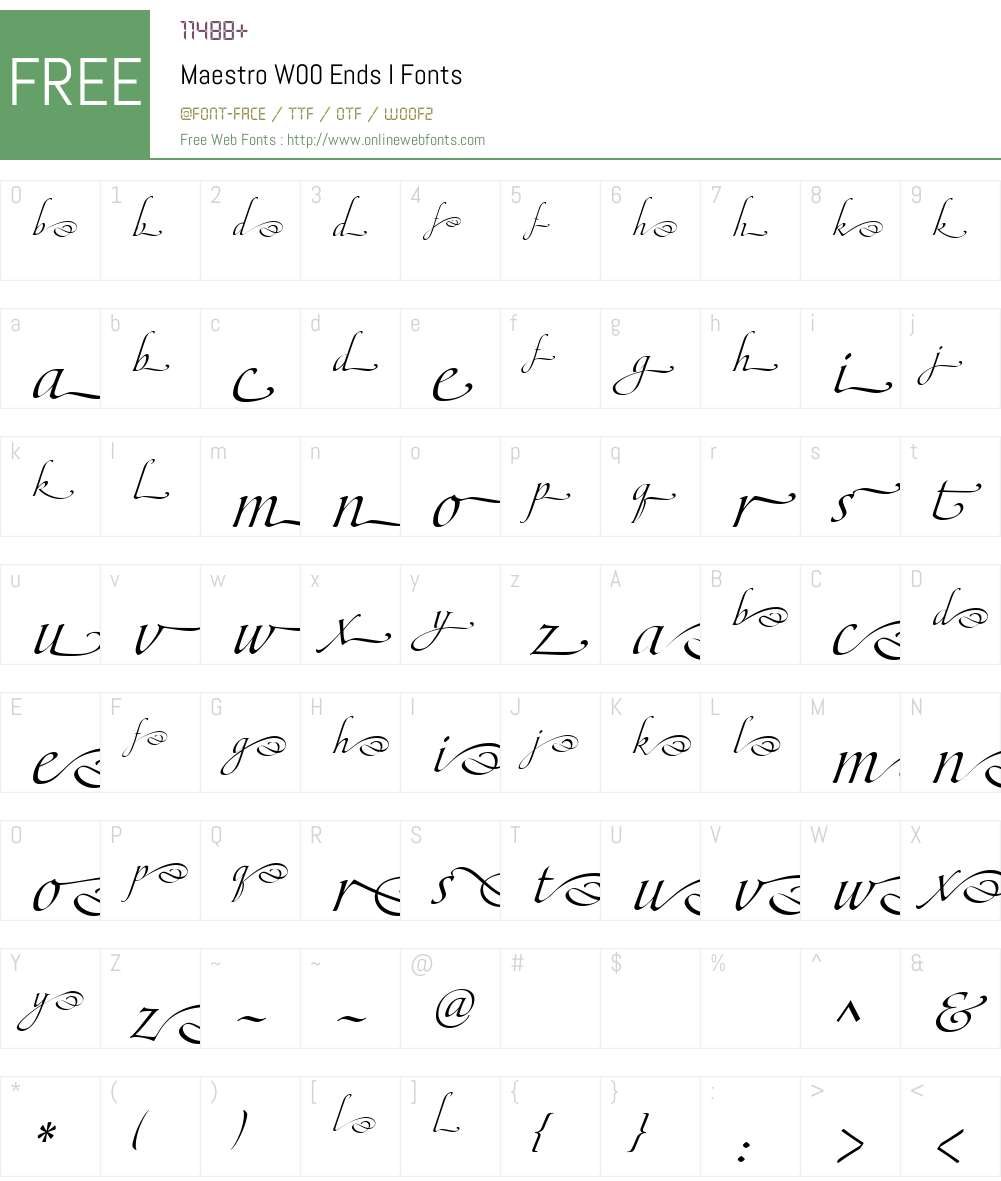 11488+
FREE
Maestro W00 Ends I Fonts
@FONT-FACE / TTF / OTF / WOOF2
Free Web Fonts : http://www.onlinewebfonts.com
0 1 2 3 4 5 6 7 8 9
b b d d f f h h k k
a b c d e f g h i j
a b c d e f g h i j
k l m n o p q r s t
k l m n o p q r s t
u v w x y z A B C D
u v w x y z a b c d
E F G H I J K L M N
e f g h i j k l m n
O P Q R S T U V W X
o p q r s t u v w x
Y Z ~ ~ @ # $ % ^ &
y z ~ ~ @ ^ &
* ( ) [ ] { } : > <
* ( ) l l { } : > <